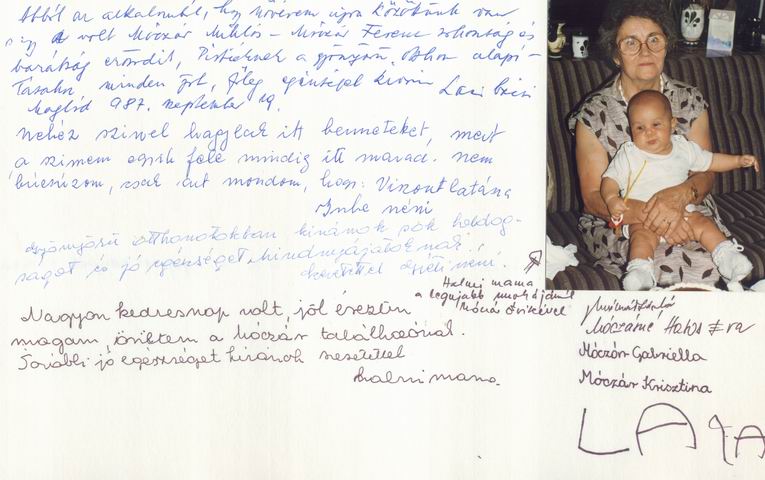 Abból az alkalomból, hogy nővérem újra közöttünk van
így a volt Móczár Miklós - Móczár Ferenc rokonság és
barátság erősödik, Pistiéknek a gyönyörű otthon alapí-
tásához minden jót, főleg egészséget kíván Laci bácsi
Maglód 987. szeptember 19.
Nehéz szívvel hagylak itt benneteket, mert
a szívem egyik fele mindig itt marad. Nem
búcsúzom, csak azt mondom, hogy: Viszontlátásra
néni
gyönyörű otthonotokban kívánok sok boldog-
ságot és jó egészséget mindnyájatoknak!
szeretettel néni.
Halmi mama
a legujabb unokájával
Móczár Évikével
Nagyon kedves nap volt, jól éreztem
magam, örültem a Móczár találkozónak.
További jó egészséget kívánok szeretettel
Halmi mama.
Móczárné Éva
Móczár Gabriella
Móczár Krisztina